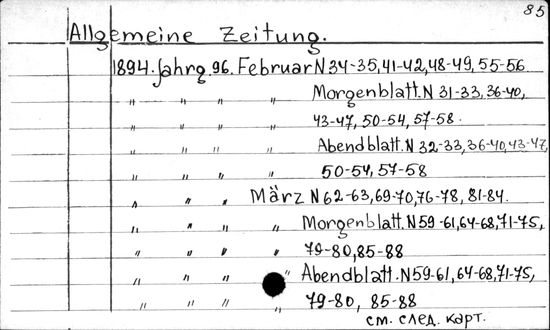 85
Allgemeine Zeitung.
1894. Jahrg. 96. Februar N 34-35, 41-42, 48-49, 55-56
" " " " Morgenblatt. N 31-33, 36-40,
" " " " 43-47, 50-54, 57-58.
" " " " Abendblatt. N 32-33, 36-40, 43-47,
" " " " 50-54, 57-58
" " " März N 62-63, 69-70, 76-78, 81-84.
" " " " Morgenblatt. N 59-61, 64-68, 71-75,
" " " " 79-80, 85-88
" " " " Abendblatt. N 59-61, 64-68, 71-75,
" " " " 79-80, 85-88
см. след. карт.